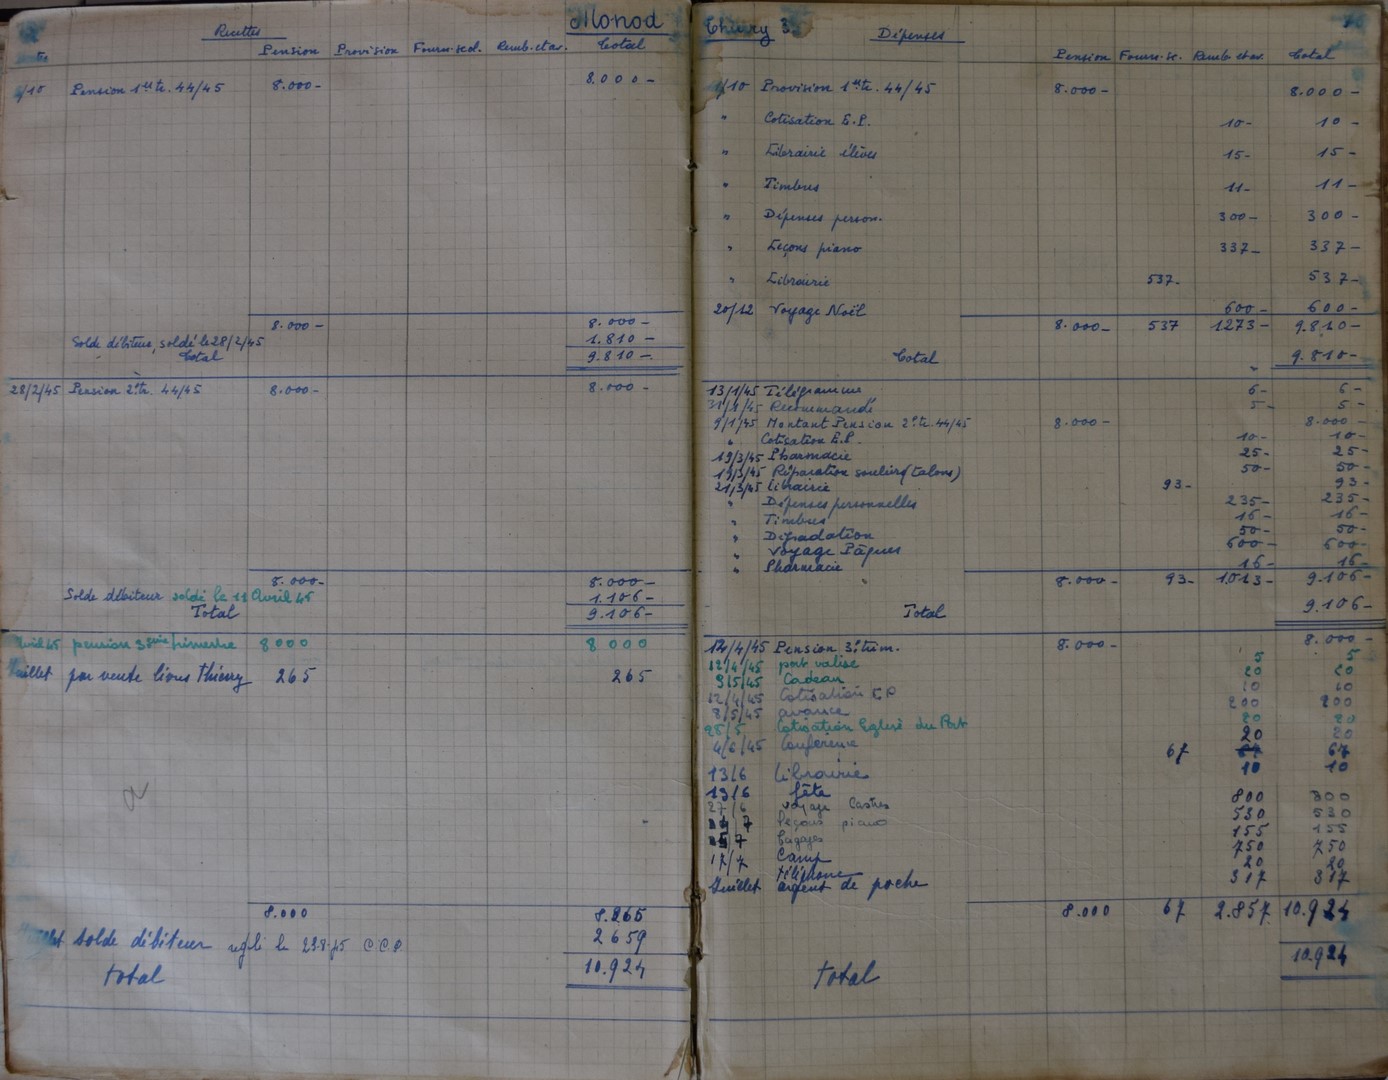 Recettes
Monod
Pension Provision Fourn. scol. Remb. et av. Total
1/10 Pension 1er tr. 44/45 8.000- 8.000-
8.000- 8.000-
Solde débiteur, soldé le 28/2/45 1.810-
Total 9.810-
28/2/45 Pension 2e tr. 44/45 8.000- 8.000-
8.000- 8.000-
Solde débiteur soldé le 11 Avril 45 1.106-
Total 9.106-
Avril 45 pension 3ème trimestre 8000 8000
Juillet par vente livres Thierry 265 265
8.000 8.265
Juillet solde débiteur réglé le 23.8.45 C.C.P. 2659
total 10.924
Thierry 3
Dépenses
Pension Fourn. sc. Remb. et av. Total
1/10 Provision 1er tr. 44/45 8.000- 8.000-
" Cotisation E.P. 10- 10-
" Librairie élèves 15- 15-
" Timbres 11- 11-
" Dépenses person. 300- 300-
" Leçons piano 337- 337-
" Librairie 537- 537-
20/12 Voyage Noël 600- 600-
8.000- 537 1273- 9.810-
Total 9.810-
13/1/45 Télégramme 6- 6-
31/1/45 Recommandé 5- 5-
9/1/45 Montant Pension 2e tr. 44/45 8.000- 8.000-
" Cotisation E.P. 10- 10-
19/3/45 Pharmacie 25- 25-
19/3/45 Réparation souliers (talons) 50- 50-
21/3/45 Librairie 93- 93-
" Dépenses personnelles 235- 235-
" Timbres 16- 16-
" Dégradation 50- 50-
" Voyage Pâques 600- 600-
" Pharmacie 16- 16-
8.000- 93- 1.013- 9.106-
Total 9.106-
12/4/45 Pension 3e trim. 8.000- 8.000-
12/4/45 port valise 5 5
9/5/45 Cadeau 20 20
12/4/45 Cotisation E P 10 10
8/5/45 avance 200 200
28/5 Cotisation Eglise du Port 20 20
4/6/45 Conférence 20 20
13/6 Librairie 67 67
13/6 fête 10 10
27/6 voyage Castres 800 800
7 leçons piano 530 530
7 bagages 155 155
17/7 Camp 750 750
téléphone 20 20
Juillet argent de poche 317 317
8.000 67 2.857 10.924
total 10.924